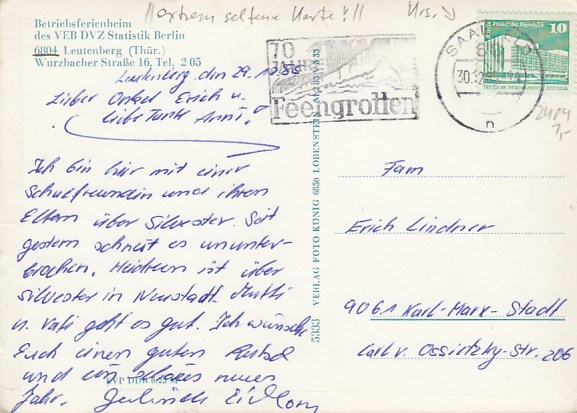 !! extrem seltene Karte !!!
Betriebsferienheim
des VEB DVZ Statistik Berlin
6804 Leutenberg (Thür.)
Wurzbacher Straße 16, Tel. 2 05
70
JAHRE
Feengrotten
SAALFELD
30.12
n
10
Palast der Republik
DEUTSCHE DEMOKRATISCHE REPUBLIK
Leutenberg, den 29.
Lieber Onkel Erich u.
liebe Tante Anni!
Ich bin hier mit einer
Schulfreundin und ihren
Eltern über Silvester. Seit
gestern schneit es ununter-
brochen. ist über
Silvester in Neustadt. Mutti
u. Vati geht es gut. Ich wünsche
Euch einen guten Rutsch
und ein neues
Jahr.
VERLAG FOTO KÖNIG 6850 LOBENSTEIN
5333
Fam
Erich Lindner
9061 Karl-Marx-Stadt
Carl v. Ossietzky-Str. 206